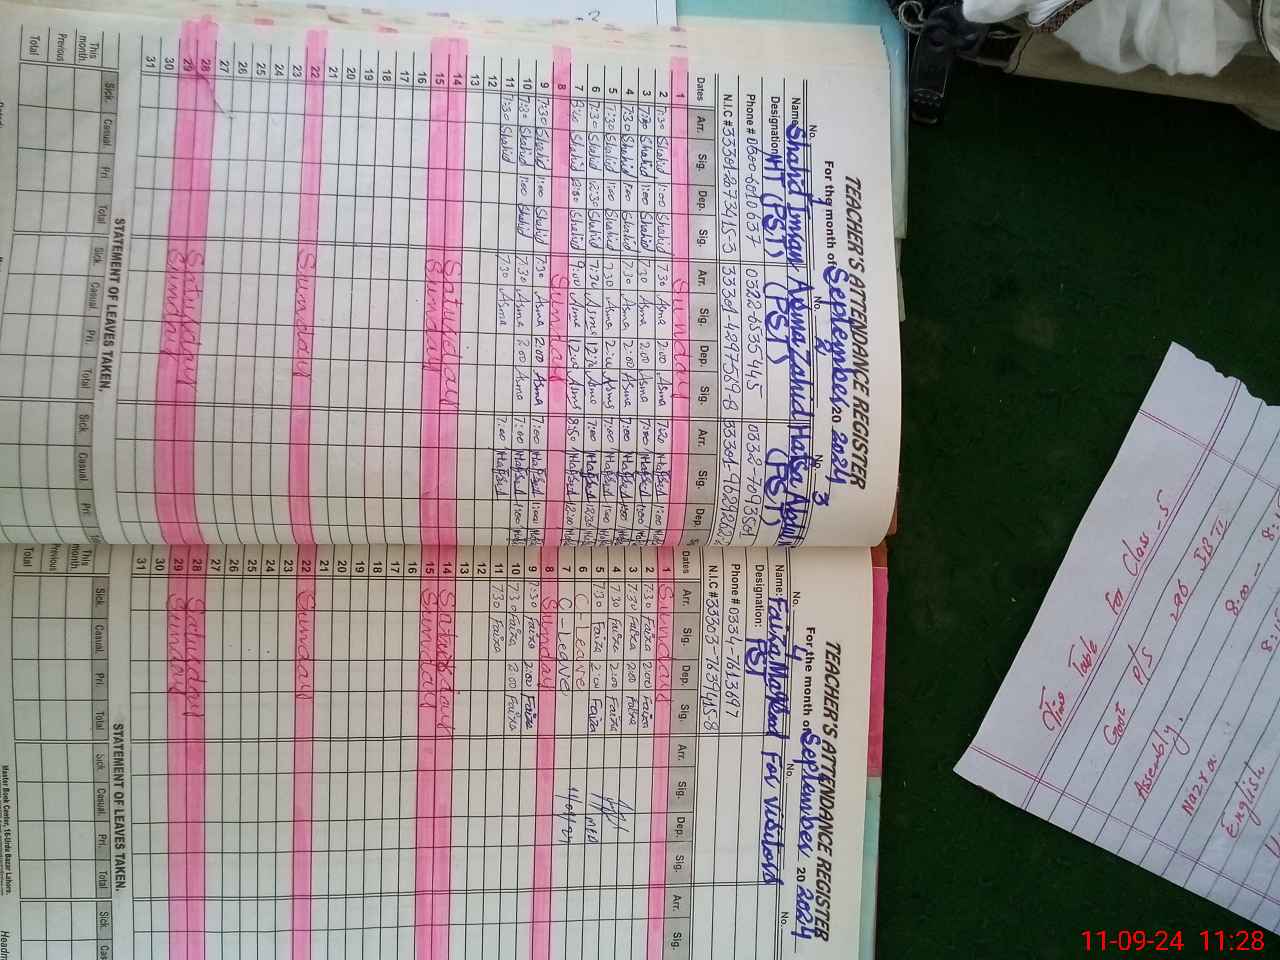 TEACHER'S ATTENDANCE REGISTER
For the month of September 20 2024
No. 1 No. 2 No. 3
Name: Shahid Imran Asma Zahid Hafsa
Designation: HT (PST) (PST) (PST)
Phone # 0300-6010637 0320-6535445
N.I.C # 33301-2673415-3 33301-4297569-8
Dates Arr. Sig. Dep. Sig. Arr. Sig. Dep. Sig. Arr. Sig. Dep.
1 Sunday
2 7:30 Shahid 1:00 Shahid 7:30 Asma 2:00 Asma 7:20 1:00
3 7:30 Shahid 1:00 Shahid 7:30 Asma 2:00 Asma 7:00 1:00
4 7:30 Shahid 1:00 Shahid 7:30 Asma 2:00 Asma 7:00 1:00
5 7:30 Shahid 1:00 Shahid 7:30 Asma 2:00 Asma 7:00 1:00
6 7:30 Shahid 12:30 Shahid 7:30 Asma Asma 7:00
7 Shahid Shahid 9:00 Asma Asma 8:50
8 Sunday
9 7:30 Shahid 1:00 Shahid 7:30 Asma 2:00 Asma 7:00 1:00
10 7:30 Shahid 1:00 Shahid 7:30 Asma 2:00 Asma 7:00 1:00
11 7:30 Shahid 7:30 Asma 7:00
12
13
14 Saturday
15 Sunday
16
17
18
19
20
21
22 Sunday
23
24
25
26
27
28 Saturday
29 Sunday
30
31
STATEMENT OF LEAVES TAKEN.
Sick. Casual. Pri Total Sick. Casual. Pri. Total Sick. Casual Pri.
This month.
Previous
Total
TEACHER'S ATTENDANCE REGISTER
For the month of September 20 2024
No. 4 No. No.
Name: Faiza Maqsood For visitors
Designation: PST
Phone # 0334-7613697
N.I.C # 33303-7639415-8
Dates Arr. Sig. Dep. Sig. Arr. Sig. Dep. Sig. Arr. Sig.
1 Sunday
2 7:30 Faiza 2:00 Faiza
3 7:30 Faiza 2:00 Faiza
4 7:30 Faiza 2:00 Faiza
5 7:30 Faiza 2:00 Faiza
6 C-Leave
7 C-Leave
8 Sunday
9 7:30 Faiza 2:00 Faiza
10 7:30 Faiza 2:00 Faiza
11 7:30 Faiza
12
13
14 Saturday
15 Sunday
16
17
18
19
20
21
22 Sunday
23
24
25
26
27
28 Saturday
29 Sunday
30
31
STATEMENT OF LEAVES TAKEN.
Sick. Casual. Pri. Total Sick. Casual. Pri. Total Sick.
This month.
Previous
Total
Master Book Center, 16-Urdu Bazar Lahore.
Time Table For Class-5
Govt P/S 296 JB TI
Assembly. 8:00 -
Nazra
English
11-09-24 11:28